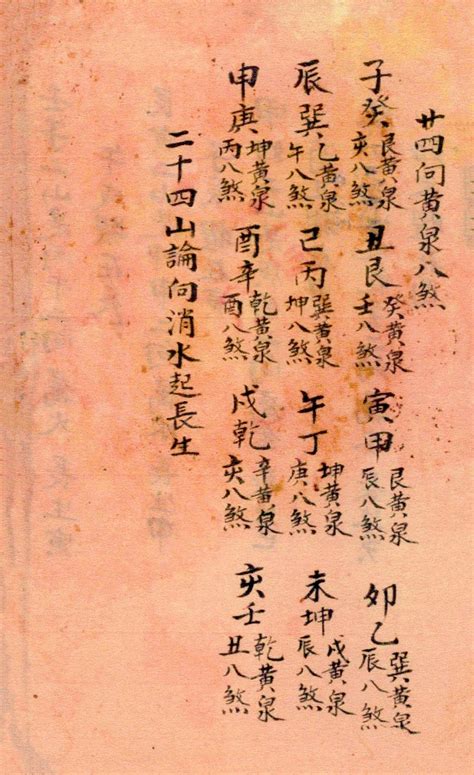 廿四向黃泉八煞
子癸艮黃泉亥八煞 丑艮癸黃泉壬八煞 寅甲艮黃泉辰八煞 卯乙巽黃泉辰八煞
辰巽乙黃泉午八煞 己丙巽黃泉坤八煞 午丁坤黃泉庚八煞 未坤戊黃泉辰八煞
申庚坤黃泉丙八煞 酉辛乾黃泉酉八煞 戌乾辛黃泉亥八煞 亥壬乾黃泉丑八煞
二十四山論向消水起長生